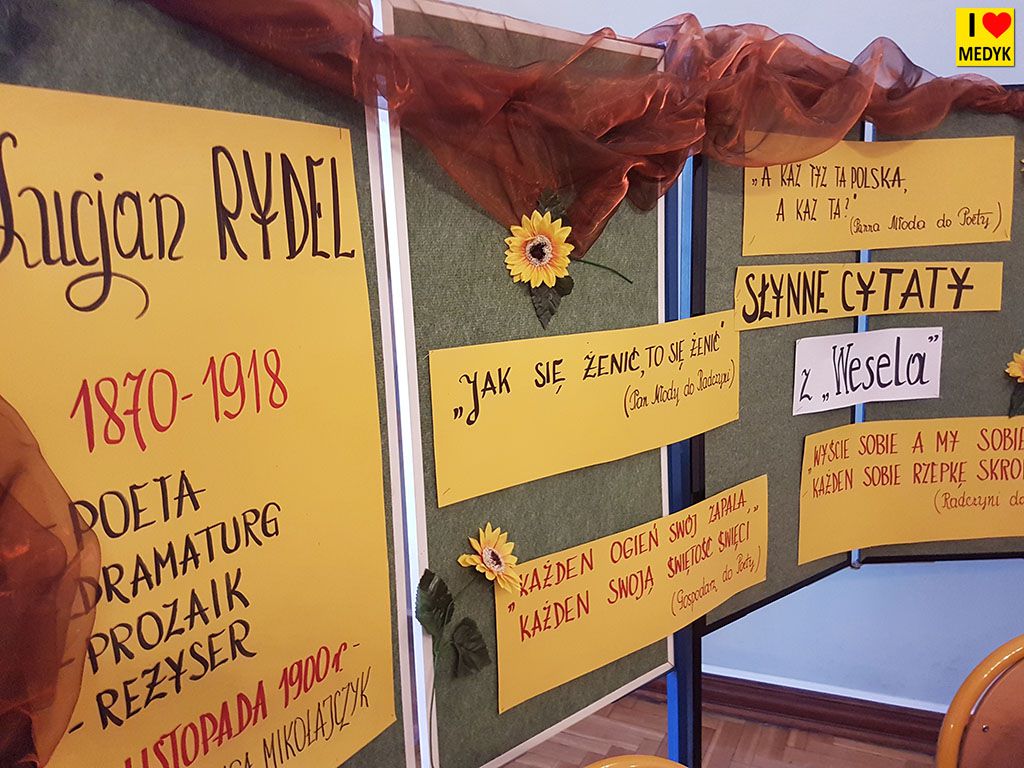 I ♥
MEDYK
Lucjan RYDEL
1870-1918
- POETA
- DRAMATURG
- PROZAIK
- REŻYSER
LISTOPADA 1900r -
MIKOŁAJCZYK
„JAK SIĘ ŻENIĆ, TO SIĘ ŻENIĆ"
(Pan Młody do Radczyni)
„KAŻDEN OGIEŃ SWÓJ ZAPALA,
KAŻDEN SWOJĄ ŚWIĘTOŚĆ ŚWIĘCI"
(Gospodarz do Poety)
„A KAZ TYŻ TA POLSKA,
A KAZ TA?"
(Panna Młoda do Poety)
SŁYNNE CYTATY
z „Wesela"
„WYŚCIE SOBIE A MY SOBIE
KAŻDEN SOBIE RZEPKĘ
(Radczyni